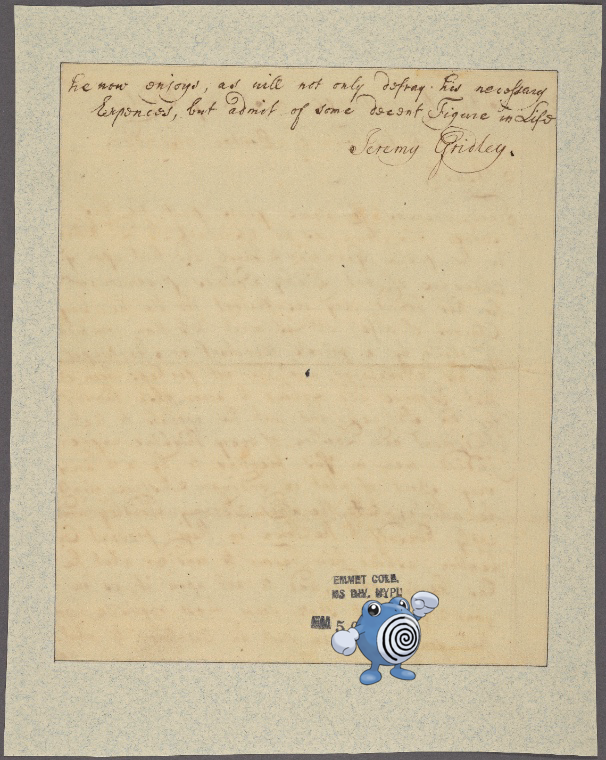 he now enjoys, as will not only defray his necessary
Expences, but admit of some decent Figure in Life
Jeremy Gridley.
EMMET COLL.
MS DIV. NYPL
EM